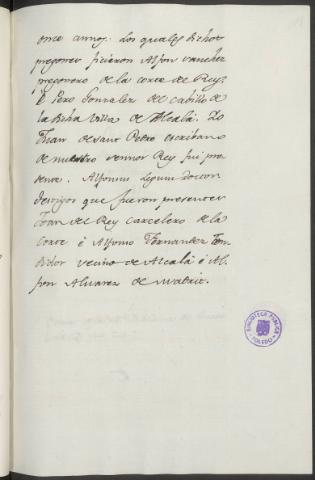 once annos. Los quales dichos
pregones ficieron Alfon Sanchez
pregonero de la corte de Rey,
è Pero Gonzalez del cabillo de
la dicha Villa de Alcalá. Io
Juan de sant Pedro escribano
de nuestro sennor Rey fui pre
sente. Alfonsus Legum Doctor.
Testigos que fueron presentes
Joan del Rey Carcelero de la
Corte è Alfonso Fernandez
vecino de Alcalá è Al
fon Alvarez de Madrit.
BIBLIOTECA PUBLICA
TOLEDO